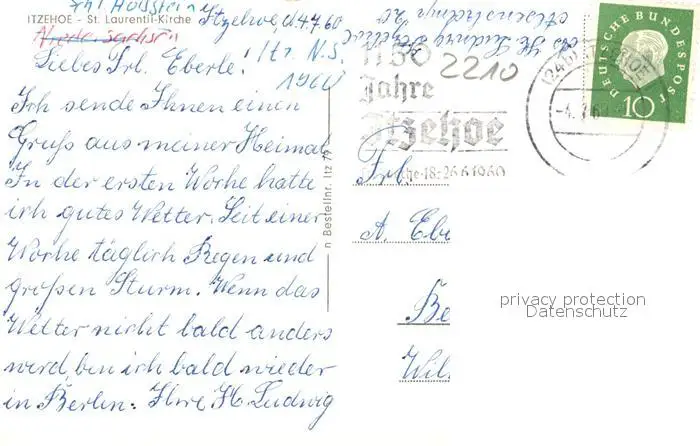 ITZEHOE - St. Laurentii-Kirche
Itzehoe, d. 4.7.60
Liebes Frl. Eberle!
Itz. N.S.
1960
Ich sende Ihnen einen
Gruß aus meiner Heimat
In der ersten Woche hatte
ich gutes Wetter. Seit einer
Woche täglich Regen und
großen Sturm. Wenn das
Wetter nicht bald anders
wird, bin ich bald wieder
in Berlin. Ihre H. Ludwig
n Bestellnr. Itz
Jahre
Itzehoe
18-26.6.1960
2210
DEUTSCHE BUNDESPOST
10
Frl.
A. Eb
Be
Wil
privacy protection
Datenschutz